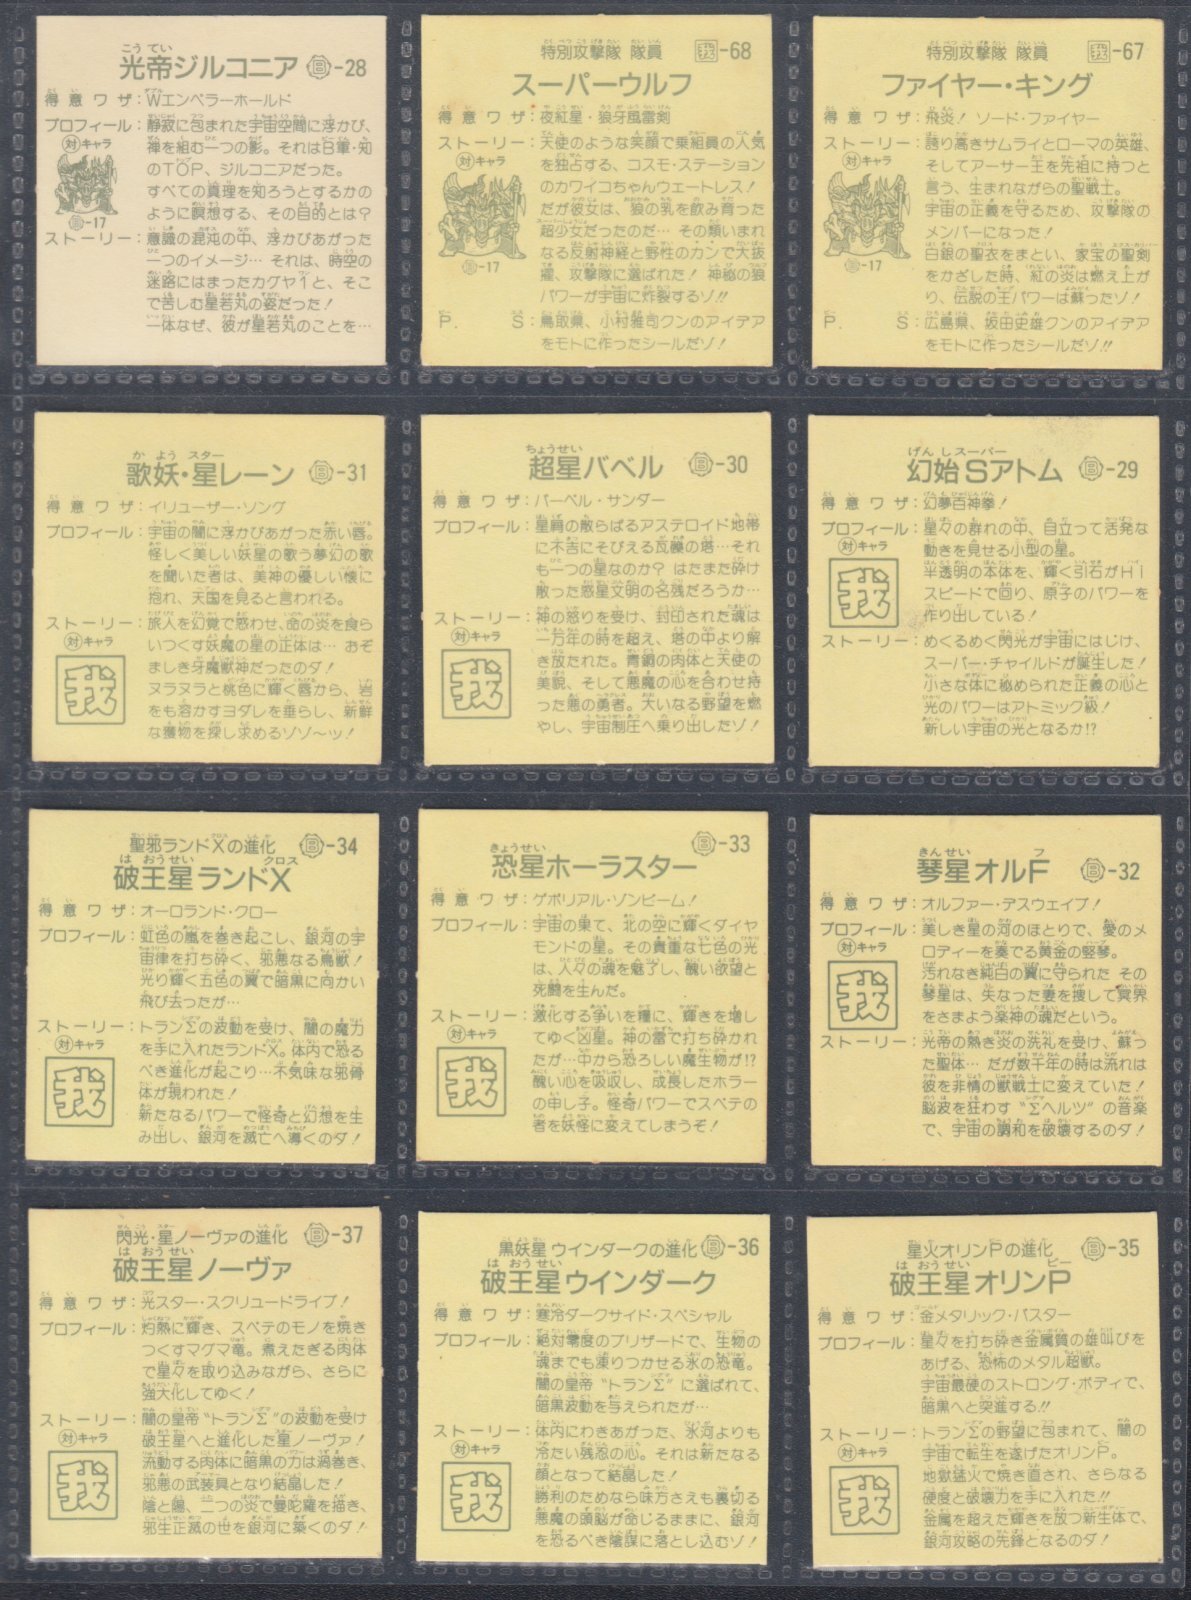 光帝ジルコニア Ⓑ-28
得意ワザ:Wエンペラーホールド
プロフィール:静寂に包まれた宇宙空間に浮かび、
対キャラ 神を組む一つの影。それはB軍・知
のTOP、ジルコニアだった。
すべての真理を知ろうとするかの
ように瞑想する、その目的とは?
-17
ストーリー:意識の混沌の中、浮かびあがった
一つのイメージ…それは、時空の
迷路にはまったカグヤ1と、そこ
で苦しむ星若丸の姿だった!
一体なぜ、彼が星若丸のことを…
特別攻撃隊 隊員 我-68
スーパーウルフ
得意ワザ:夜紅星・狼牙風雷剣
ストーリー:天使のような笑顔で乗組員の人気
対キャラ を独占する、コスモ・ステーション
のカワイコちゃんウェートレス!
だが彼女は、狼の乳を飲み育った
超少女だったのだ…その類いまれ
なる反射神経と野性のカンで大抜
-17 擢、攻撃隊に選ばれた!神秘の狼
パワーが宇宙に炸裂するゾ!!
P. S:鳥取県、小村雅司クンのアイデア
をモトに作ったシールだゾ!
特別攻撃隊 隊員 我-67
ファイヤー・キング
得意ワザ:飛炎!ソード・ファイヤー
ストーリー:誇り高きサムライとローマの英雄、
対キャラ そしてアーサー王を先祖に持つと
言う、生まれながらの聖戦士。
宇宙の正義を守るため、攻撃隊の
メンバーになった!
白銀の聖衣をまとい、家宝の聖剣
-17 をかざした時、紅の炎は燃え上が
り、伝説の王パワーは蘇ったゾ!
P. S:広島県、坂田史雄クンのアイデア
をモトに作ったシールだゾ!!
歌妖・星レーン Ⓑ-31
得意ワザ:イリューザー・ソング
プロフィール:宇宙の闇に浮かびあがった赤い唇。
怪しく美しい妖星の歌う夢幻の歌
を聞いた者は、美神の優しい懐に
抱れ、天国を見ると言われる。
ストーリー:旅人を幻覚で惑わせ、命の炎を食ら
対キャラ いつくす妖魔の星の正体は…おぞ
我 ましき牙魔獣神だったのダ!
ヌラヌラと桃色に輝く唇から、岩
をも溶かすヨダレを垂らし、新鮮
な獲物を探し求めるゾゾ〜ッ!
超星バベル Ⓑ-30
得意ワザ:バーベル・サンダー
プロフィール:星屑の散らばるアステロイド地帯
に不吉にそびえる瓦礫の塔…それ
も一つの星なのか?はたまた砕け
散った惑星文明の名残だろうか…
ストーリー:神の怒りを受け、封印された魂は
対キャラ 一万年の時を超え、塔の中より解
我 き放たれた。青銅の肉体と天使の
美貌、そして悪魔の心を合わせ持
った悪の勇者。大いなる野望を燃
やし、宇宙制圧へ乗り出したゾ!
幻始Sアトム Ⓑ-29
得意ワザ:幻夢百神拳!
プロフィール:星々の群れの中、自立って活発な
対キャラ 動きを見せる小型の星。
我 半透明の本体を、輝く引石がHi
スピードで回り、原子のパワーを
作り出している!
ストーリー:めくるめく閃光が宇宙にはじけ、
スーパー・チャイルドが誕生した!
小さな体に秘められた正義の心と
光のパワーはアトミック級!
新しい宇宙の光となるか!?
聖邪ランドXの進化 Ⓑ-34
破王星ランドX
得意ワザ:オーロランド・クロー
プロフィール:虹色の嵐を巻き起こし、銀河の宇
宙律を打ち砕く、邪悪なる鳥獣!
光り輝く五色の翼で暗黒に向かい
飛び去ったが…
ストーリー:トランΣの波動を受け、闇の魔力
対キャラ を手に入れたランドX。体内で恐る
我 べき進化が起こり…不気味な邪骨
体が現われた!
新たなるパワーで怪奇と幻想を生
み出し、銀河を滅亡へ導くのダ!
恐星ホーラスター Ⓑ-33
得意ワザ:ゲボリアル・ゾンビーム!
プロフィール:宇宙の果て、北の空に輝くダイヤ
モンドの星。その貴重な七色の光
は、人々の魂を魅了し、醜い欲望と
死闘を生んだ。
ストーリー:激化する争いを糧に、輝きを増し
対キャラ てゆく凶星。神の雷で打ち砕かれ
我 たが…中から恐ろしい魔生物が!?
醜い心を吸収し、成長したホラー
の申し子。怪奇パワーでスペテの
者を妖怪に変えてしまうぞ!
琴星オルF Ⓑ-32
得意ワザ:オルファー・デスウェイブ!
プロフィール:美しき星の河のほとりで、愛のメ
対キャラ ロディーを奏でる黄金の竪琴。
我 汚れなき純白の翼に守られた その
琴星は、失なった妻を捜して冥界
をさまよう楽神の魂だという。
ストーリー:光帝の熱き炎の洗礼を受け、蘇っ
た聖体…だが数千年の時の流れは
彼を非情の獣戦士に変えていた!
脳波を狂わす“Σヘルツ”の音楽
で、宇宙の調和を破壊するのダ!
閃光・星ノーヴァの進化 Ⓑ-37
破王星ノーヴァ
得意ワザ:光スター・スクリュードライブ!
プロフィール:灼熱に輝き、スペテのモノを焼き
つくすマグマ竜。煮えたぎる肉体
で星々を取り込みながら、さらに
強大化してゆく!
ストーリー:闇の皇帝“トランΣ”の波動を受け
対キャラ 破王星へと進化した星ノーヴァ!
我 流動する肉体に暗黒の力は渦巻き、
邪悪の武装具となり結晶した!
陰と陽、二つの炎で曼陀羅を描き、
邪生正滅の世を銀河に築くのダ!
黒妖星ウインダークの進化 Ⓑ-36
破王星ウインダーク
得意ワザ:寒冷ダークサイド・スペシャル
プロフィール:絶対零度のブリザードで、生物の
魂までも凍りつかせる氷の恐竜。
闇の皇帝“トランΣ”に選ばれて、
暗黒波動を与えられたが…
ストーリー:体内にわきあがった、氷河よりも
対キャラ 冷たい残忍の心。それは新たなる
我 顔となって結晶した!
勝利のためなら味方さえも裏切る
悪魔の頭脳が命じるままに、銀河
を恐るべき陰謀に落とし込むゾ!
星火オリンPの進化 Ⓑ-35
破王星オリンP
得意ワザ:金メタリック・バスター
プロフィール:星々を打ち砕き金属質の雄叫びを
あげる、恐怖のメタル超獣。
宇宙最硬のストロング・ボディで、
暗黒へと突進する!!
ストーリー:トランΣの野望に包まれて、闇の
対キャラ 宇宙で転生を遂げたオリンP。
我 地獄猛火で焼き直され、さらなる
硬度と破壊力を手に入れた!!
金属を超えた輝きを放つ新生体で、
銀河攻略の先鋒となるのダ!